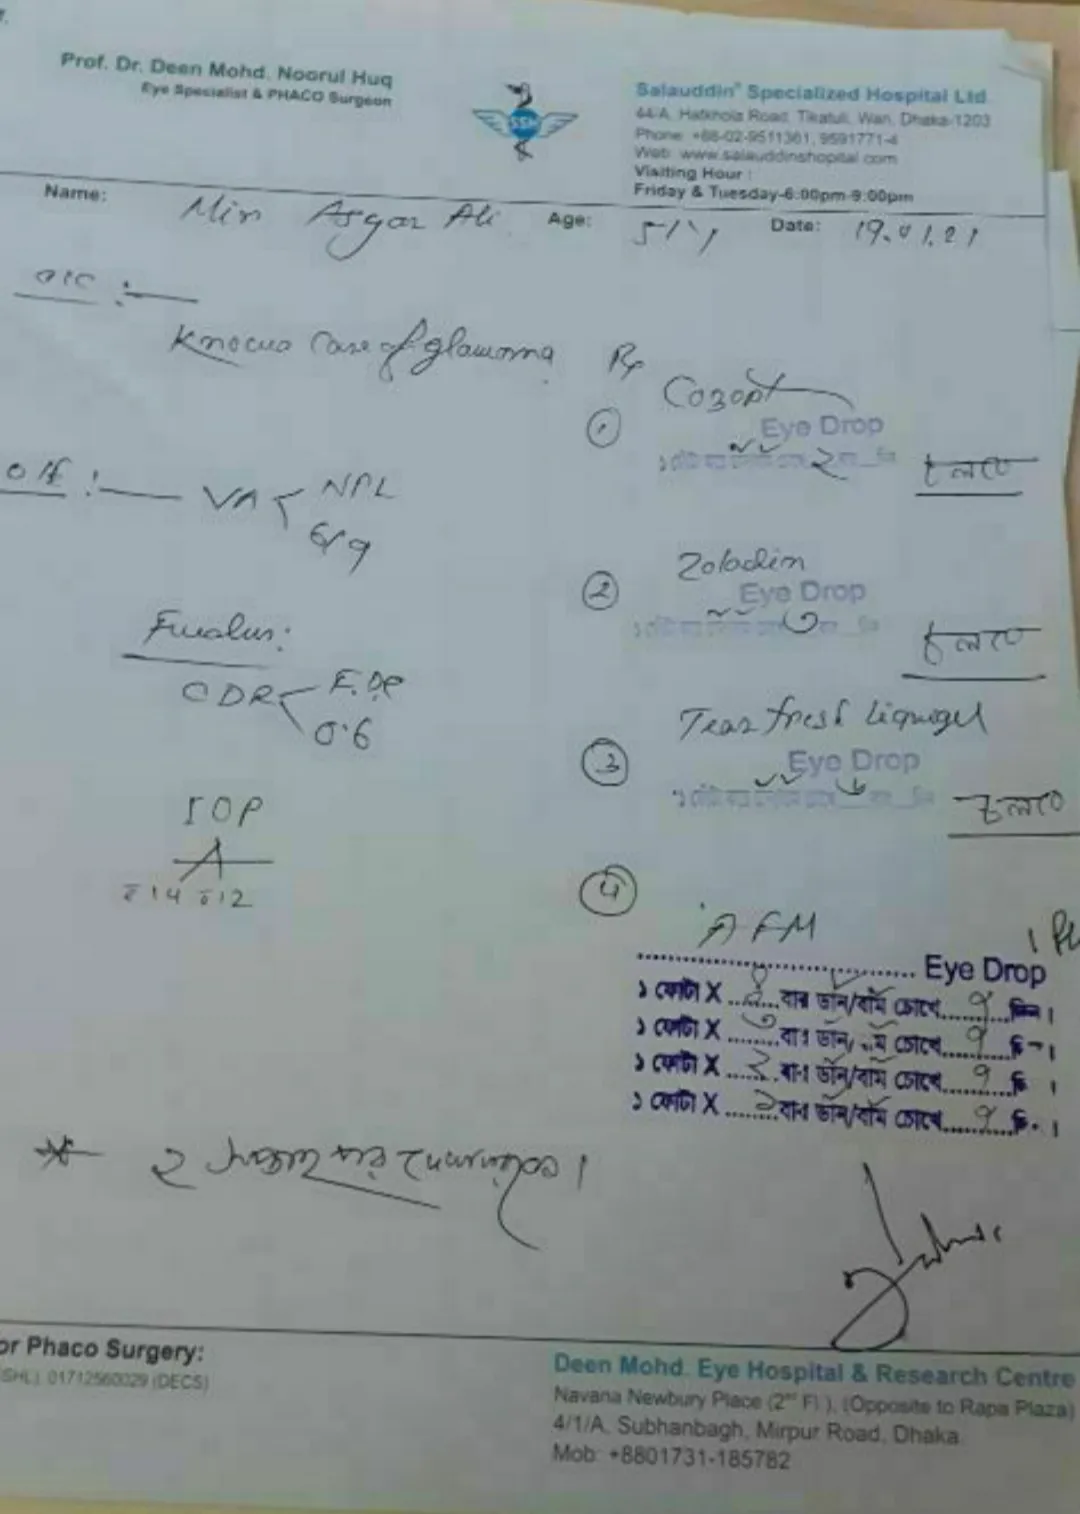 Prof. Dr. Deen Mohd. Noorul Huq
Eye Specialist & PHACO Surgeon
SSH
Salauddin Specialized Hospital Ltd.
44/A, Hatkhola Road, Tikatuli, Wari, Dhaka-1203
Phone: +88-02-9511361, 9591771-4
Web: www.salauddinshopital.com
Visiting Hour :
Friday & Tuesday-6:00pm-9:00pm
Name: Mir Asgar Ali Age: 51y Date: 19.01.21
O/C :—
Known Case of glaucoma
O/E :— VA < NPL
6/9
Fundus:
CDR <
0.6
IOP
A
14 12
Rx
① Cozopt
Eye Drop
২ চলবে
② Zoladin
Eye Drop
৩ চলবে
③ Tear fresh Liquigel
Eye Drop
চলবে
④ AFM
Eye Drop
১ ফোটা X ৪ বার ডান/বাম চোখে ৭ দিন।
১ ফোটা X ৩ বার ডান/বাম চোখে ৭ দিন।
১ ফোটা X ২ বার ডান/বাম চোখে ৭ দিন।
১ ফোটা X ১ বার ডান/বাম চোখে ৭ দিন।
* ২ সপ্তাহ পর দেখা করবেন।
or Phaco Surgery:
SHL) 01712560029 (DECS)
Deen Mohd. Eye Hospital & Research Centre
Navana Newbury Place (2nd Fl.), (Opposite to Rapa Plaza)
4/1/A, Subhanbagh, Mirpur Road, Dhaka.
Mob: +8801731-185782